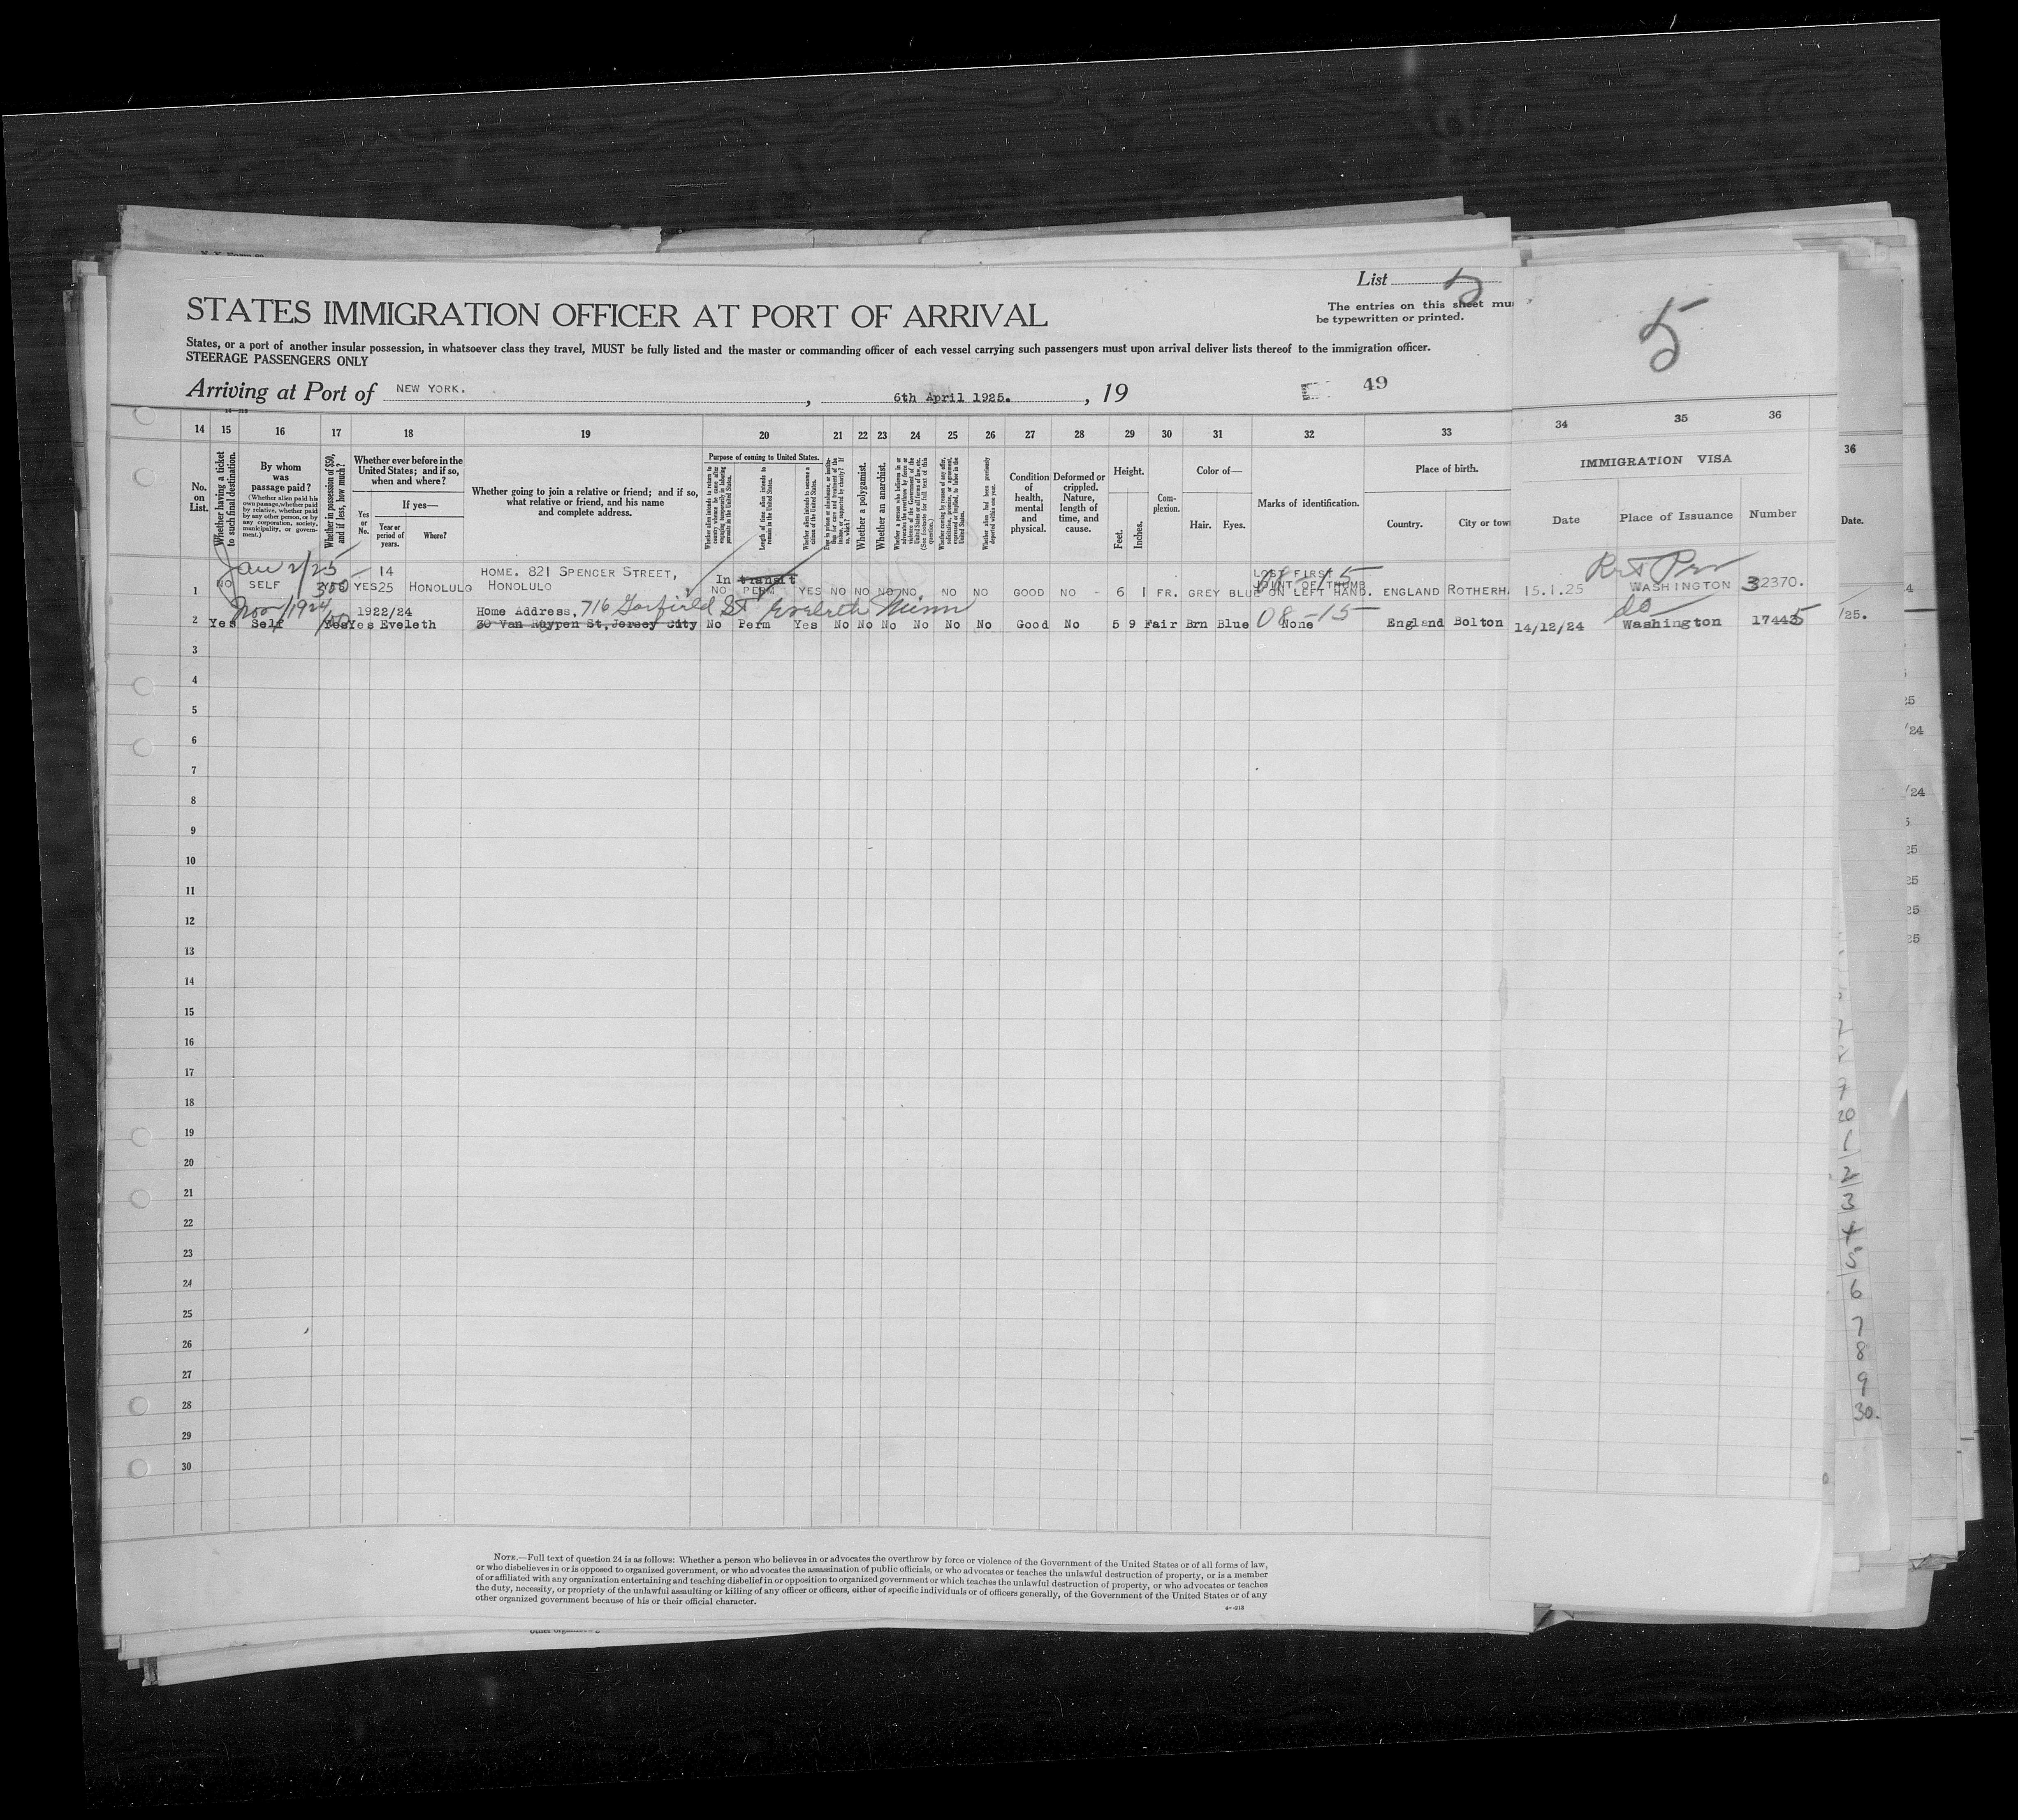 List 5
The entries on this sheet mu
be typewritten or printed.
5
STATES IMMIGRATION OFFICER AT PORT OF ARRIVAL
States, or a port of another insular possession, in whatsoever class they travel, MUST be fully listed and the master or commanding officer of each vessel carrying such passengers must upon arrival deliver lists thereof to the immigration officer.
STEERAGE PASSENGERS ONLY
Arriving at Port of NEW YORK. , 6th April 1925. , 19
49
14 15 16 17 18 19 20 21 22 23 24 25 26 27 28 29 30 31 32 33 34 35 36
No. on List.
Whether having a ticket to such final destination.
By whom was passage paid?
(Whether alien paid his own passage, whether paid by relative, whether paid by any other person, or by any corporation, society, municipality, or government.)
Whether in possession of $50, and if less, how much?
Whether ever before in the United States; and if so, when and where?
Yes or No.
If yes—
Year or period of years.
Where?
Whether going to join a relative or friend; and if so, what relative or friend, and his name and complete address.
Purpose of coming to United States.
Whether alien intends to return to country whence he came after engaging temporarily in laboring pursuits in the United States.
Length of time alien intends to remain in the United States.
Whether alien intends to become a citizen of the United States.
Whether a polygamist.
Whether an anarchist.
Whether alien had been previously deported within one year.
Condition of health, mental and physical.
Deformed or crippled. Nature, length of time, and cause.
Height.
Feet. Inches.
Complexion.
Color of—
Hair. Eyes.
Marks of identification.
Place of birth.
Country. City or town
IMMIGRATION VISA
Date Place of Issuance Number
36
Date.
Jan 2/25 14 HOME. 821 SPENCER STREET, In transit LOST FIRST 08-15 Ret Per
1 NO SELF YES 300 YES 25 HONOLULU HONOLULU NO PERM YES NO NO NO NO. NO NO GOOD NO - 6 1 FR. GREY BLUE JOINT OF THUMB ON LEFT HAND. ENGLAND ROTHERH. 15.1.25 WASHINGTON 32370.
Nov/1924 1922/24 Home Address, 716 Garfield St Eveleth Minn 08-15 do
2 Yes Self Yes Yes Eveleth 30 Van Ruypen St, Jersey City No Perm Yes No No No No No No Good No 5 9 Fair Brn Blue None England Bolton 14/12/24 Washington 17445 /25.
3
4
5
6
7
8
9
10
11
12
13
14
15
16
17
18
19
20
21
22
23
24
25
26
27
28
29
30
NOTE.—Full text of question 24 is as follows: Whether a person who believes in or advocates the overthrow by force or violence of the Government of the United States or of all forms of law,
or who disbelieves in or is opposed to organized government, or who advocates the assassination of public officials, or who advocates or teaches the unlawful destruction of property, or is a member
of or affiliated with any organization entertaining and teaching disbelief in or opposition to organized government or which teaches the unlawful destruction of property, or who advocates or teaches
the duty, necessity, or propriety of the unlawful assaulting or killing of any officer or officers, either of specific individuals or of officers generally, of the Government of the United States or of any
other organized government because of his or their official character.